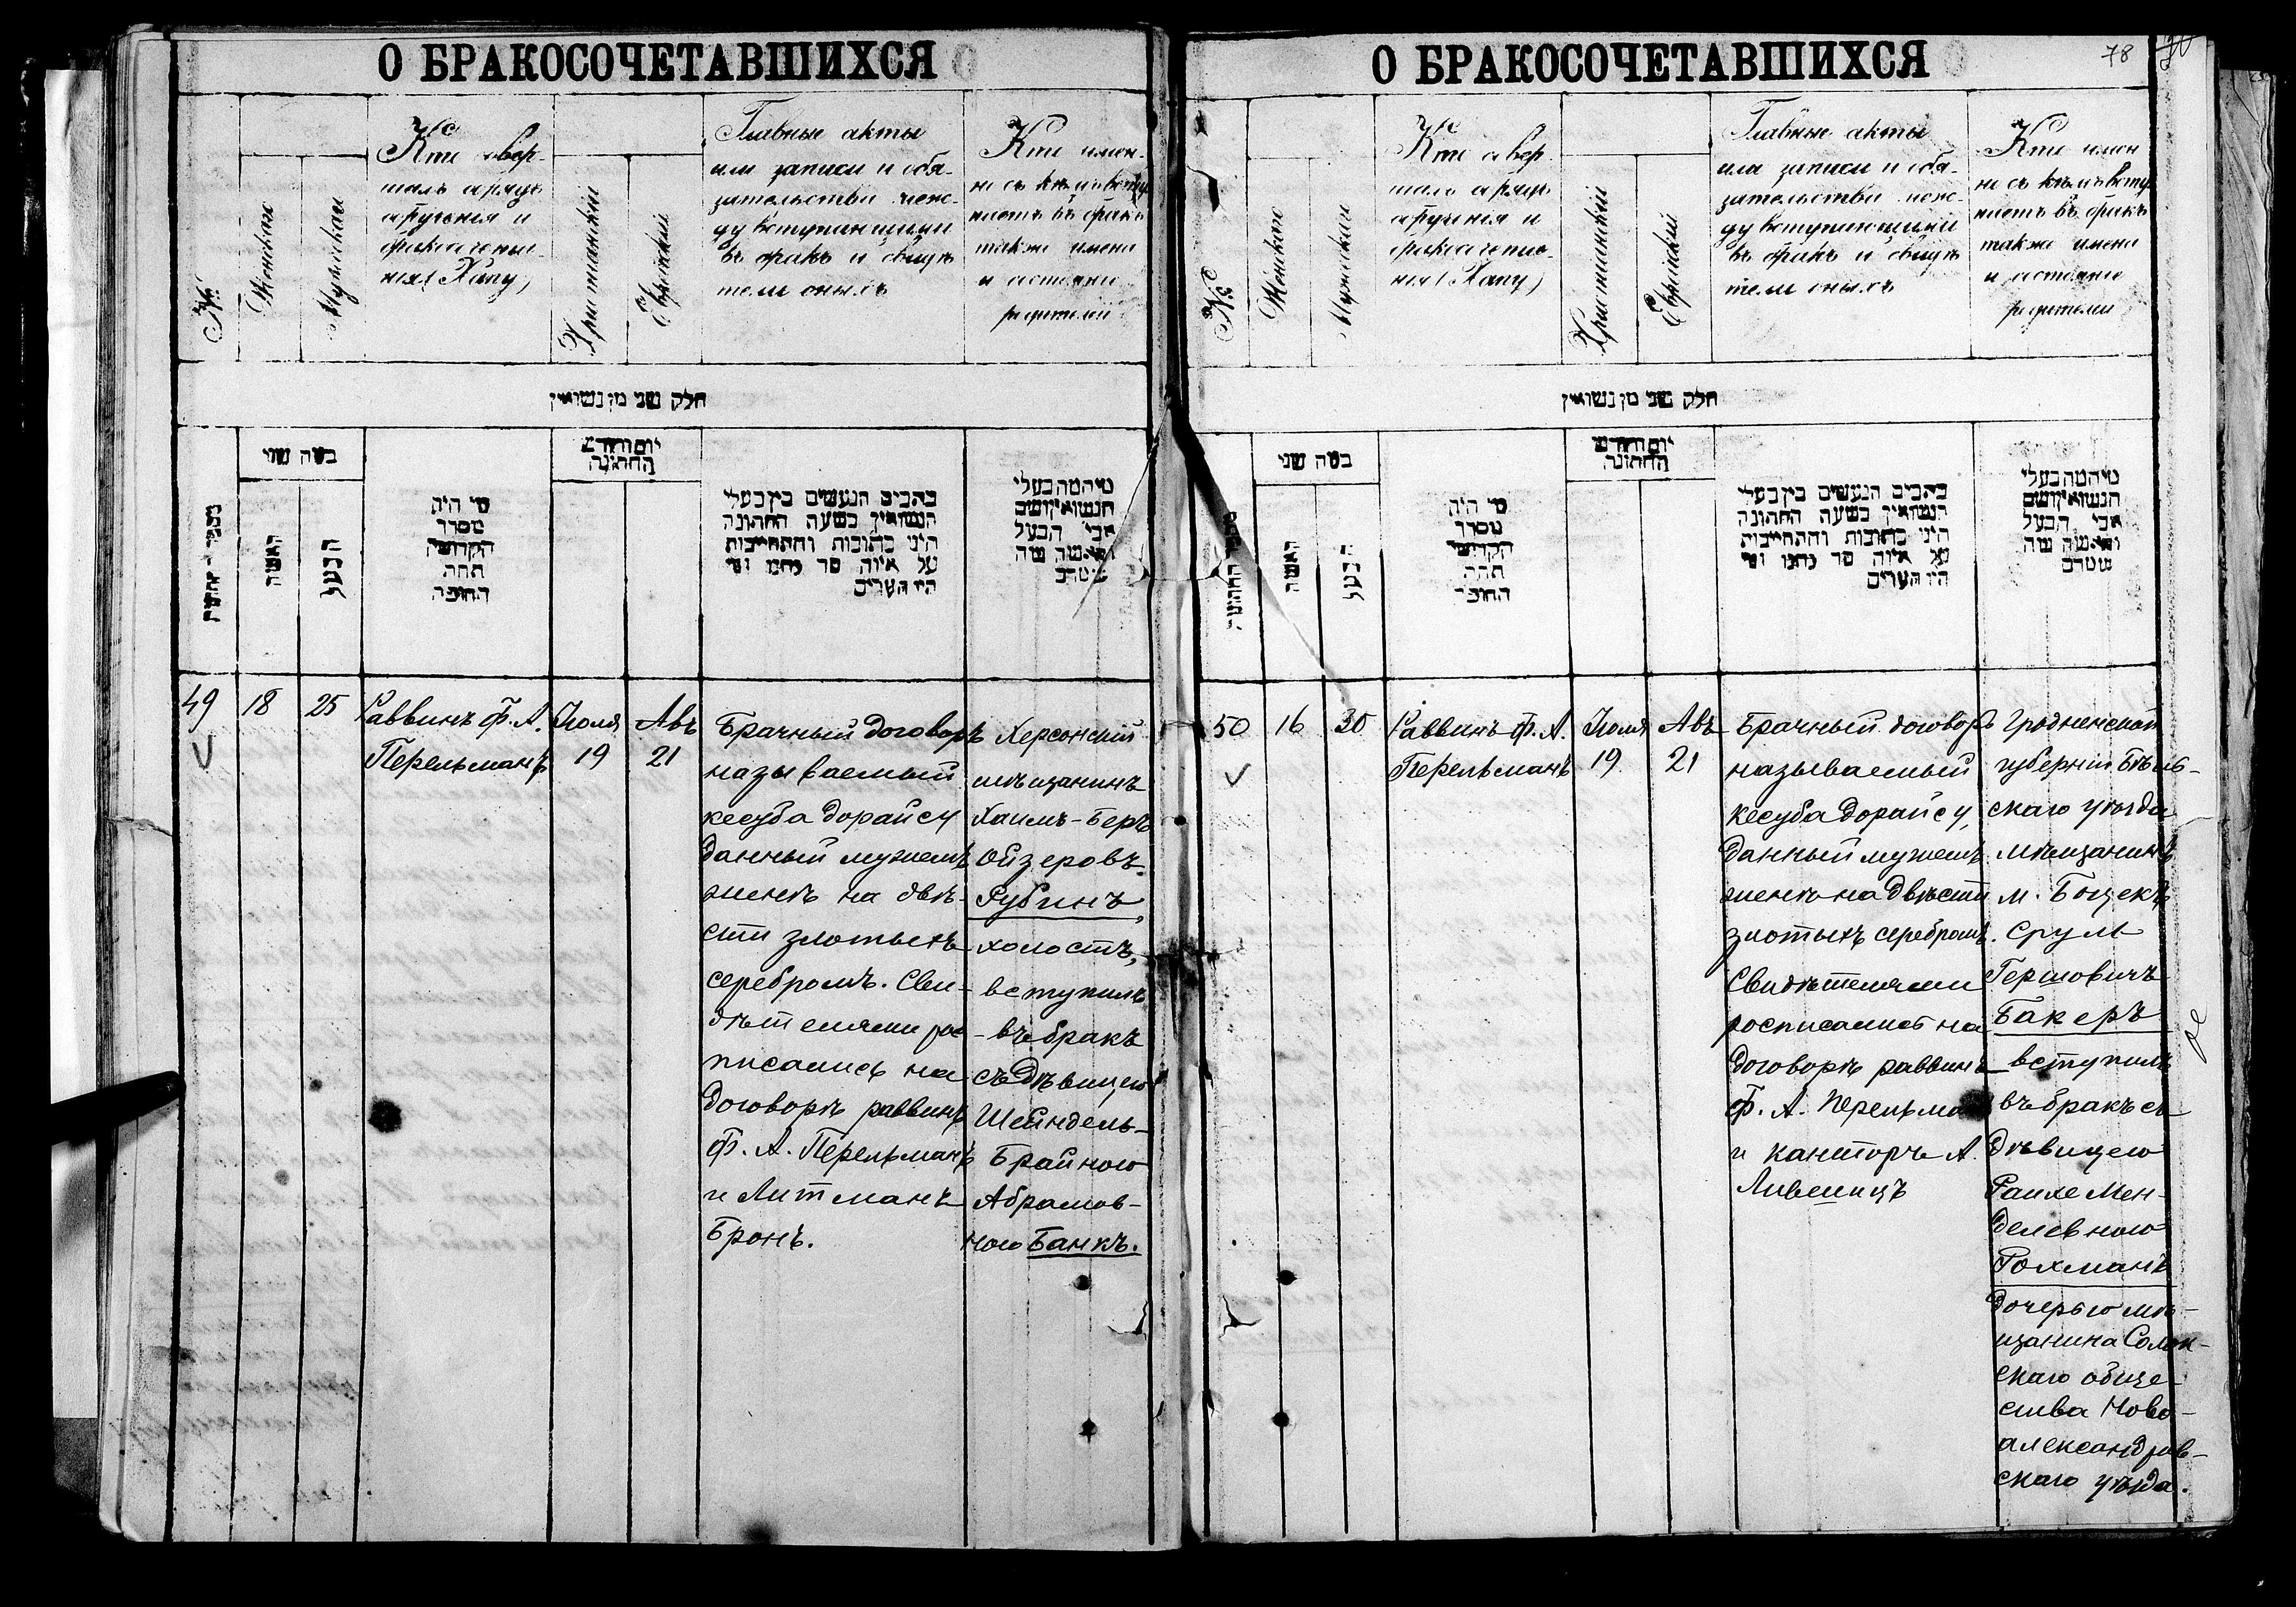 О БРАКОСОЧЕТАВШИХСЯ
№
Женская
Мужская
Кто совер-
шалъ обрядъ
обрученія и
бракосочета-
нія (Хапу)
Христіанскій
Еврейскій
Главные акты
или записи и обя-
зательства меж-
ду вступающими
въ бракъ и свидѣ
тели оныхъ
Кто имен-
но съ кѣмъ всту
паетъ въ бракъ
также имена
и состояніе
родителей
חלק שני מן נשואין
האשה
הבעל
במה שני
מי היה
מסדר
הקדושי
תחת
החופה
יום וחודש
החתונה
כתבים הנעשים בין בעלי
הנשואין בשעה החתונה
היני כתובות והתחייבות
על איזה סך נתנו ומי
היו העדים
מי המה בעלי
הנשואין ושם
אבי הבעל
והאשה מה
מטרם
49
18
25
Раввинъ Ф. А.
Перельманъ
Іюля
19
Авъ
21
Брачный договоръ
называемый
кесуба дорайсу
данный мужемъ
женѣ на двѣ-
сти злотыхъ
серебромъ. Сви-
дѣтелями рос
писались на
договорѣ раввинъ
Ф. А. Перельманъ
и Литманъ
Бронъ.
Херсонскій
мѣщанинъ
Хаимъ-Беръ
Ойзеровъ
Рубинъ,
холостъ,
вступилъ
въ бракъ
съ дѣвицею
Шейндель-
Брайною
Абрамов-
ною Банкъ.
О БРАКОСОЧЕТАВШИХСЯ
78
№
Женская
Мужская
Кто совер-
шалъ обрядъ
обрученія и
бракосочета-
нія (Хапу)
Христіанскій
Еврейскій
Главные акты
или записи и обя-
зательства меж-
ду вступающими
въ бракъ и свидѣ
тели оныхъ
Кто имен
но съ кѣмъ всту
паетъ въ бракъ
также имена
и состояніе
родителей
חלק שני מן נשואין
האשה
הבעל
במה שני
מי היה
מסדר
הקדושי
תחת
החופה
יום וחודש
החתונה
כתבים הנעשים בין בעלי
הנשואין בשעה החתונה
היני כתובות והתחייבות
על איזה סך נתנו ומי
היו העדים
מי המה בעלי
הנשואין ושם
אבי הבעל
והאשה מה
מטרם
50
16
30
Раввинъ Ф. А.
Перельманъ
Іюля
19
Авъ
21
Брачный договоръ
называемый
кесуба дорайсу,
данный мужемъ
женѣ на двѣсти
злотыхъ серебромъ.
Свидѣтелями
росписались на
договорѣ раввинъ
Ф. А. Перельма
и канторъ А.
Лившицъ
Гродненской
губерніи Бѣль-
скаго уѣзда
мѣщанинъ
м. Боцекъ
Срул
Гершовичъ
Бакеръ
вступилъ
въ бракъ съ
дѣвицею
Раихе Мен-
делевною
Рохманъ
дочерью мѣ-
щанина Солок-
скаго обще-
ства Ново-
александров-
скаго уѣзда.